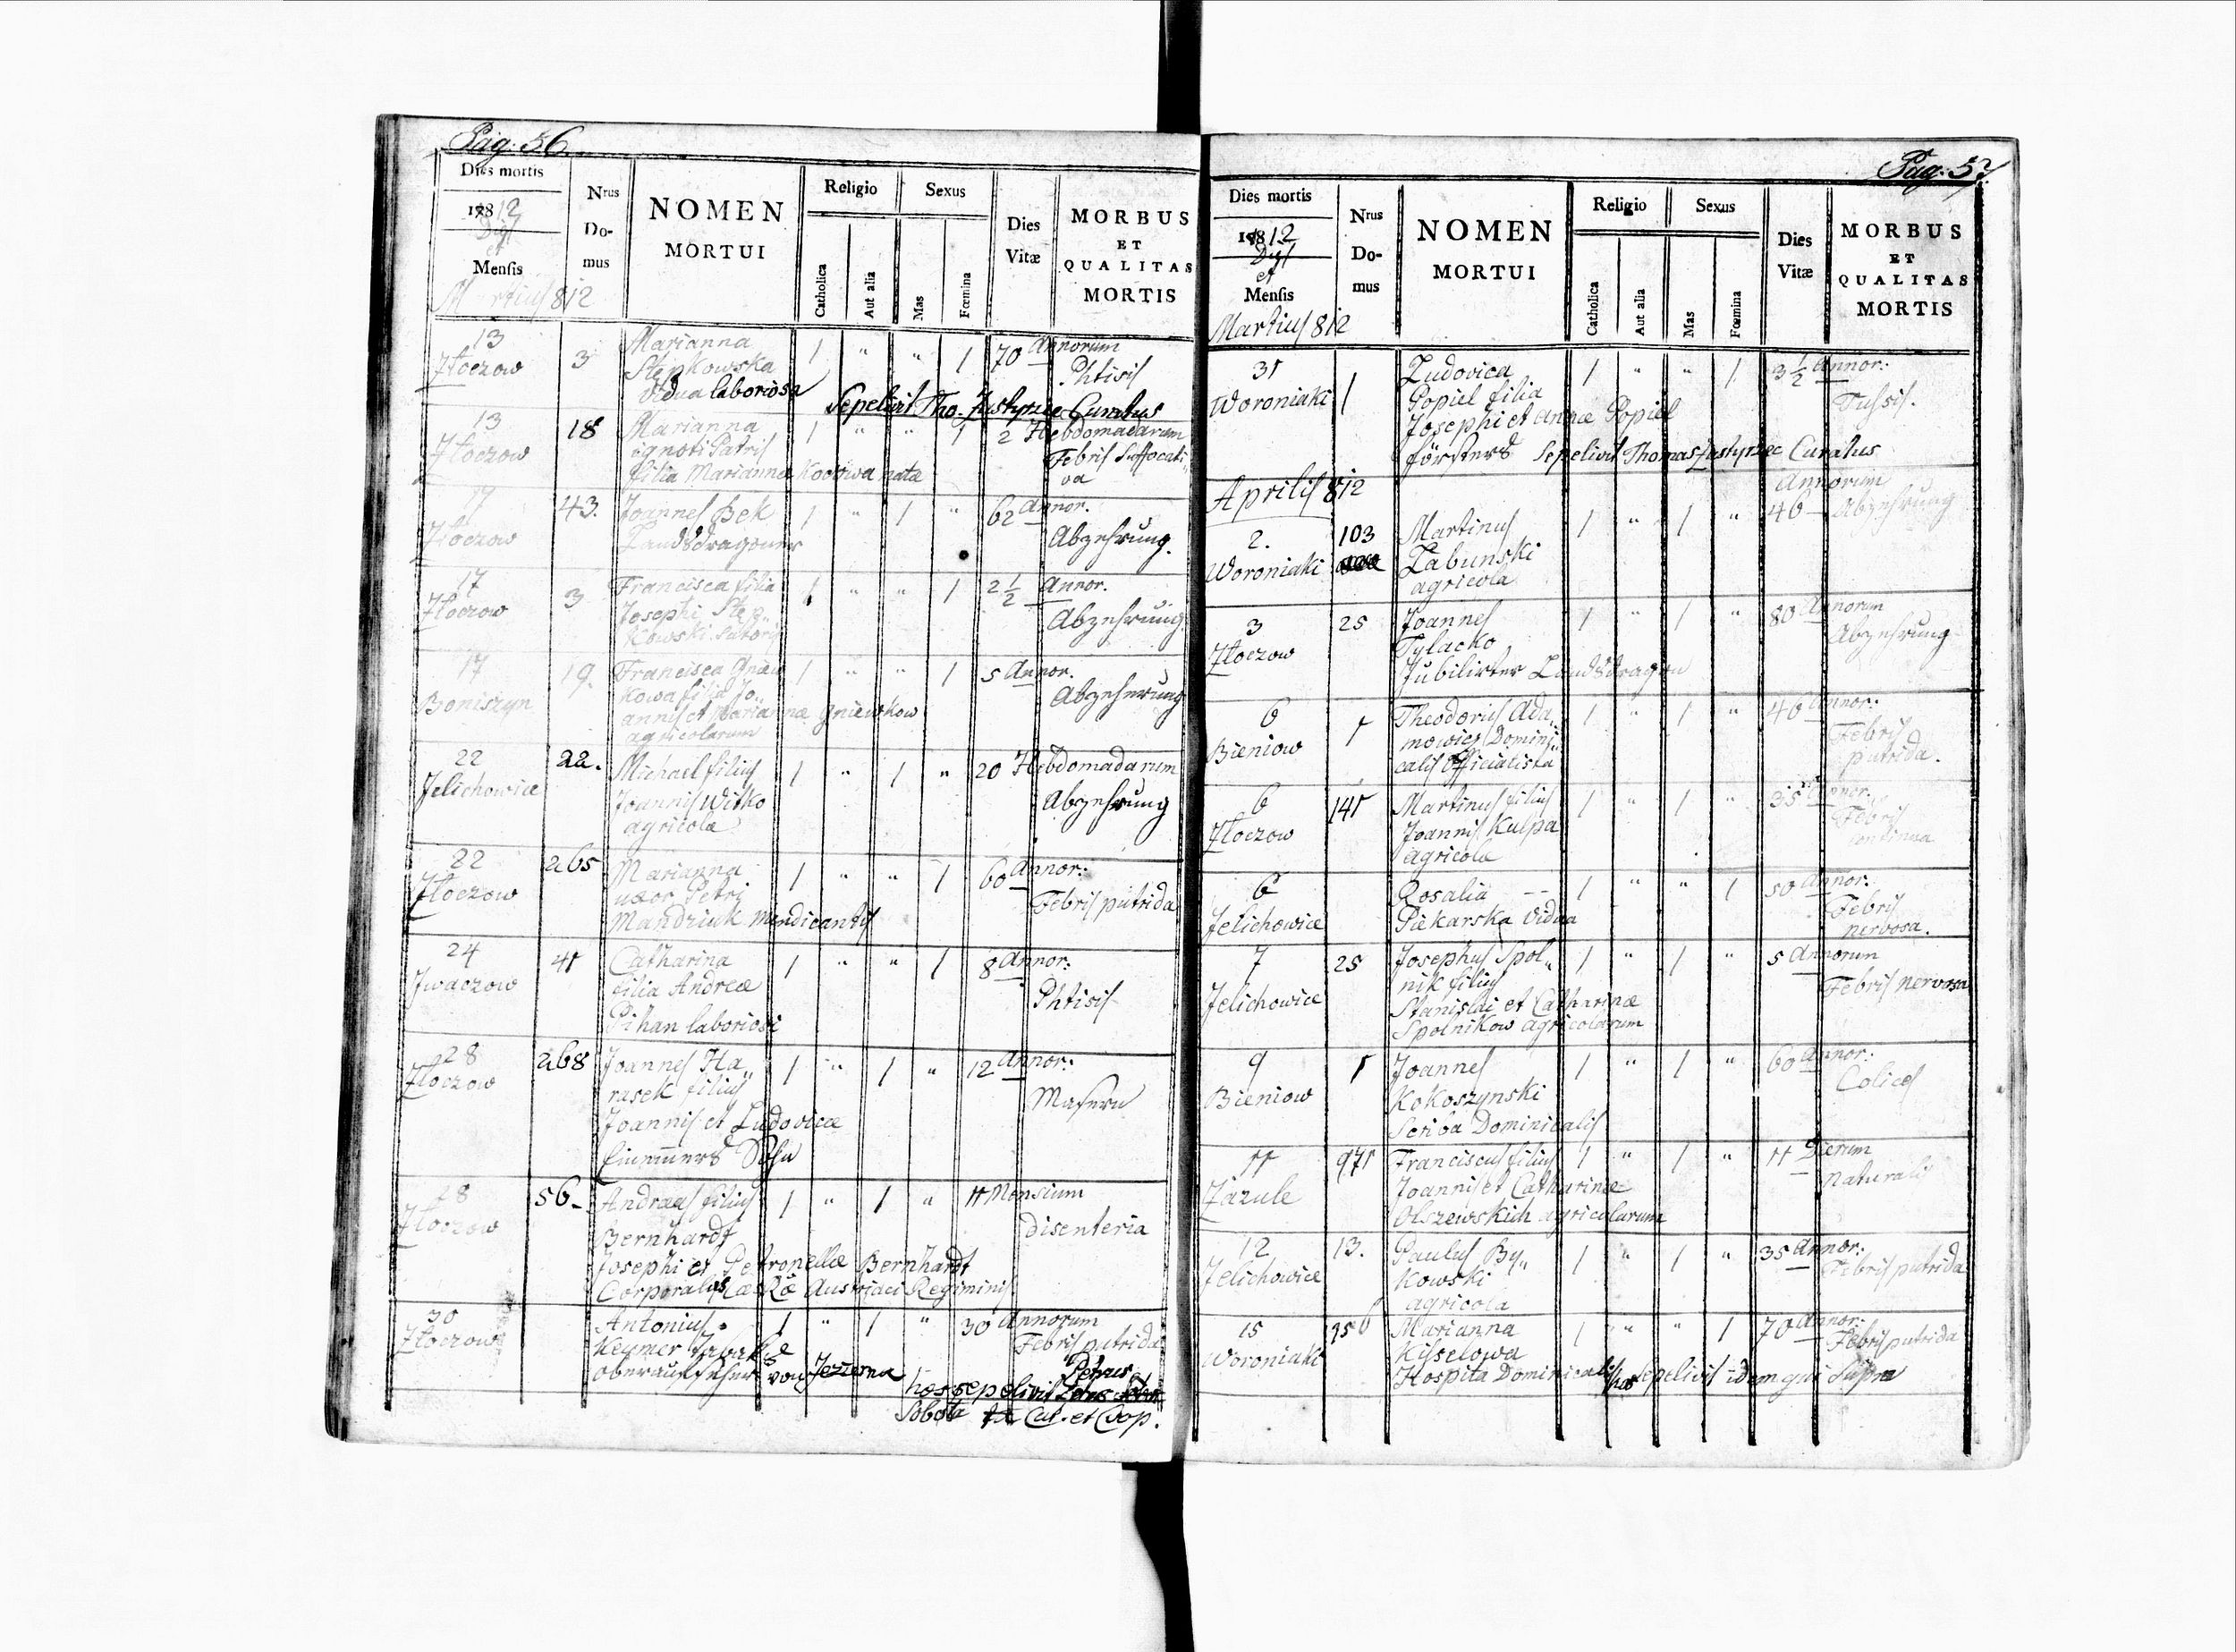 Pag. 56
Dies mortis
1812
Dies
et
Mensis
Martius 812
Nrus
Do-
mus
NOMEN
MORTUI
Religio
Catholica
Aut alia
Sexus
Mas
Fœmina
Dies
Vitæ
MORBUS
ET
QUALITAS
MORTIS
13
Złoczow
3
Marianna
Stepkowska
Vidua laboriosa
1 " " 1
70 Annorum
Phtisis
Sepelivit Tho. Curatus
13
Złoczow
18
Marianna
ignoti Patris
filia Marianna nata
1 " " 1
2 Hebdomadarum
Febris Suffocati„
va
17
Złoczow
43.
Joannes Bek
Landsdragoner
1 " 1 "
62 Annor.
Abzehrung.
17
Złoczow
3
Francisca filia
Josephi Step„
kowski Sutoris
1 " " 1
2 1/2 Annor.
Abzehrung.
17
Boniszyn
19.
Francisca Gniew
kowa filia Jo„
annis et Mariannæ Gniewkow
agricolarum
1 " " 1
5 Annor.
Abzehrung
22
Jelichowice
22.
Michael filius
Joannis Witko
agricolæ
1 " 1 "
20 Hebdomadarum
Abzehrung
22
Złoczow
265
Marianna
uxor Petri
Mandziuk mendicantis
1 " " 1
60 Annor.
Febris putrida
24
Jwaczow
41
Catharina
filia Andreæ
Pihan laboriosi
1 " " 1
8 Annor:
Phtisis
28
Złoczow
268
Joannes Ha„
rasek filius
Joannis et Ludovicæ
Sohn
1 " 1 "
12 Annor:
Masern
28
Złoczow
56
Andreas filius
Bernhardt
Josephi et Petronellæ Bernhardt
Corporalis Austriaci Regiminis
1 " 1 "
11 Mensium
disenteria
30
Złoczow
Antonius
Keymer Tabak
oberaufseher von Jezierna
1 " 1 "
30 Annorum
Febris putrida
Petrus
hos sepelivit
Sobota Cur. et Coop.
Pag. 57
Dies mortis
1812
Dies
et
Mensis
Martius 812
Nrus
Do-
mus
NOMEN
MORTUI
Religio
Catholica
Aut alia
Sexus
Mas
Fœmina
Dies
Vitæ
MORBUS
ET
QUALITAS
MORTIS
31
Woroniaki
1
Ludovica
Popiel filia
Josephi et Annæ Popiel
försters
1 " " 1
3 1/2 Annor:
Tussis.
Sepelivit Thomas Curatus
Aprilis 812
2.
Woroniaki
103
Martinus
Łabunski
agricola
1 " 1 "
Annorum
46
Abzehrung
3
Złoczow
25
Joannes
Tylacko
Jubilirter Landsdragon
1 " 1 "
80 Annorum
Abzehrung
6
Bieniow
1
Theodorus Ada„
mowicz Domini„
calis Officialista
1 " 1 "
46 Annor:
Febris
putrida.
6
Złoczow
141
Martinus filius
Joannis Kulpa
agricolæ
1 " 1 "
35 Annor.
Febris
continua
6
Jelichowice
Rosalia
Piekarska Vidua
1 " " 1
50 Annor:
Febris
nervosa.
7
Jelichowice
25
Josephus Spol„
nik filius
Stanislai et Catharinæ
Spolnikow agricolarum
1 " 1 "
5 Annorum
Febris nervosa
9
Bieniow
1
Joannes
Kokoszynski
Scriba Dominicalis
1 " 1 "
60 Annor:
Colices
11
Zazule
971
Franciscus filius
Joannis et Catharinæ
Olszewskich agricolarum
1 " 1 "
11 Dierum
naturalis
12
Jelichowice
13.
Paulus By„
kowski
agricola
1 " 1 "
35 Annor:
Febris putrida
15
Woroniaki
Marianna
Kisselowa
Hospita Dominicalis
1 " " 1
70 Annor:
Febris putrida
hos Sepelivit idem qui Supra